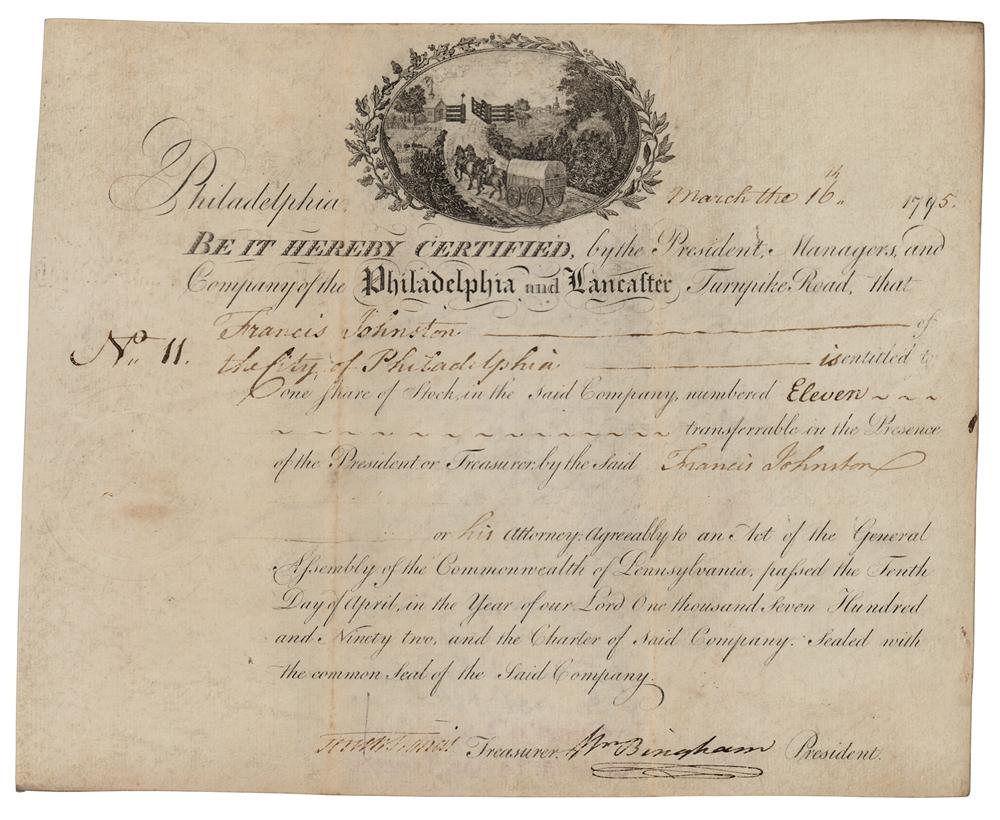 Philadelphia, March the 16th 1795.
BE IT HEREBY CERTIFIED, by the President, Managers, and
Company of the Philadelphia and Lancaster Turnpike Road, that
Francis Johnston of
No. 11. the City of Philadelphia is entitled to
one Share of Stock, in the said Company, numbered Eleven ~ ~ ~
~ ~ ~ ~ ~ ~ ~ ~ ~ ~ ~ ~ ~ transferrable in the Presence
of the President or Treasurer, by the Said Francis Johnston
or his Attorney; Agreeably to an Act of the General
Assembly of the Commonwealth of Pennsylvania, passed the Tenth
Day of April, in the Year of our Lord One thousand Seven Hundred
and Ninety two, and the Charter of Said Company. Sealed with
the common Seal of the Said Company.
Treasurer. Wm Bingham President.